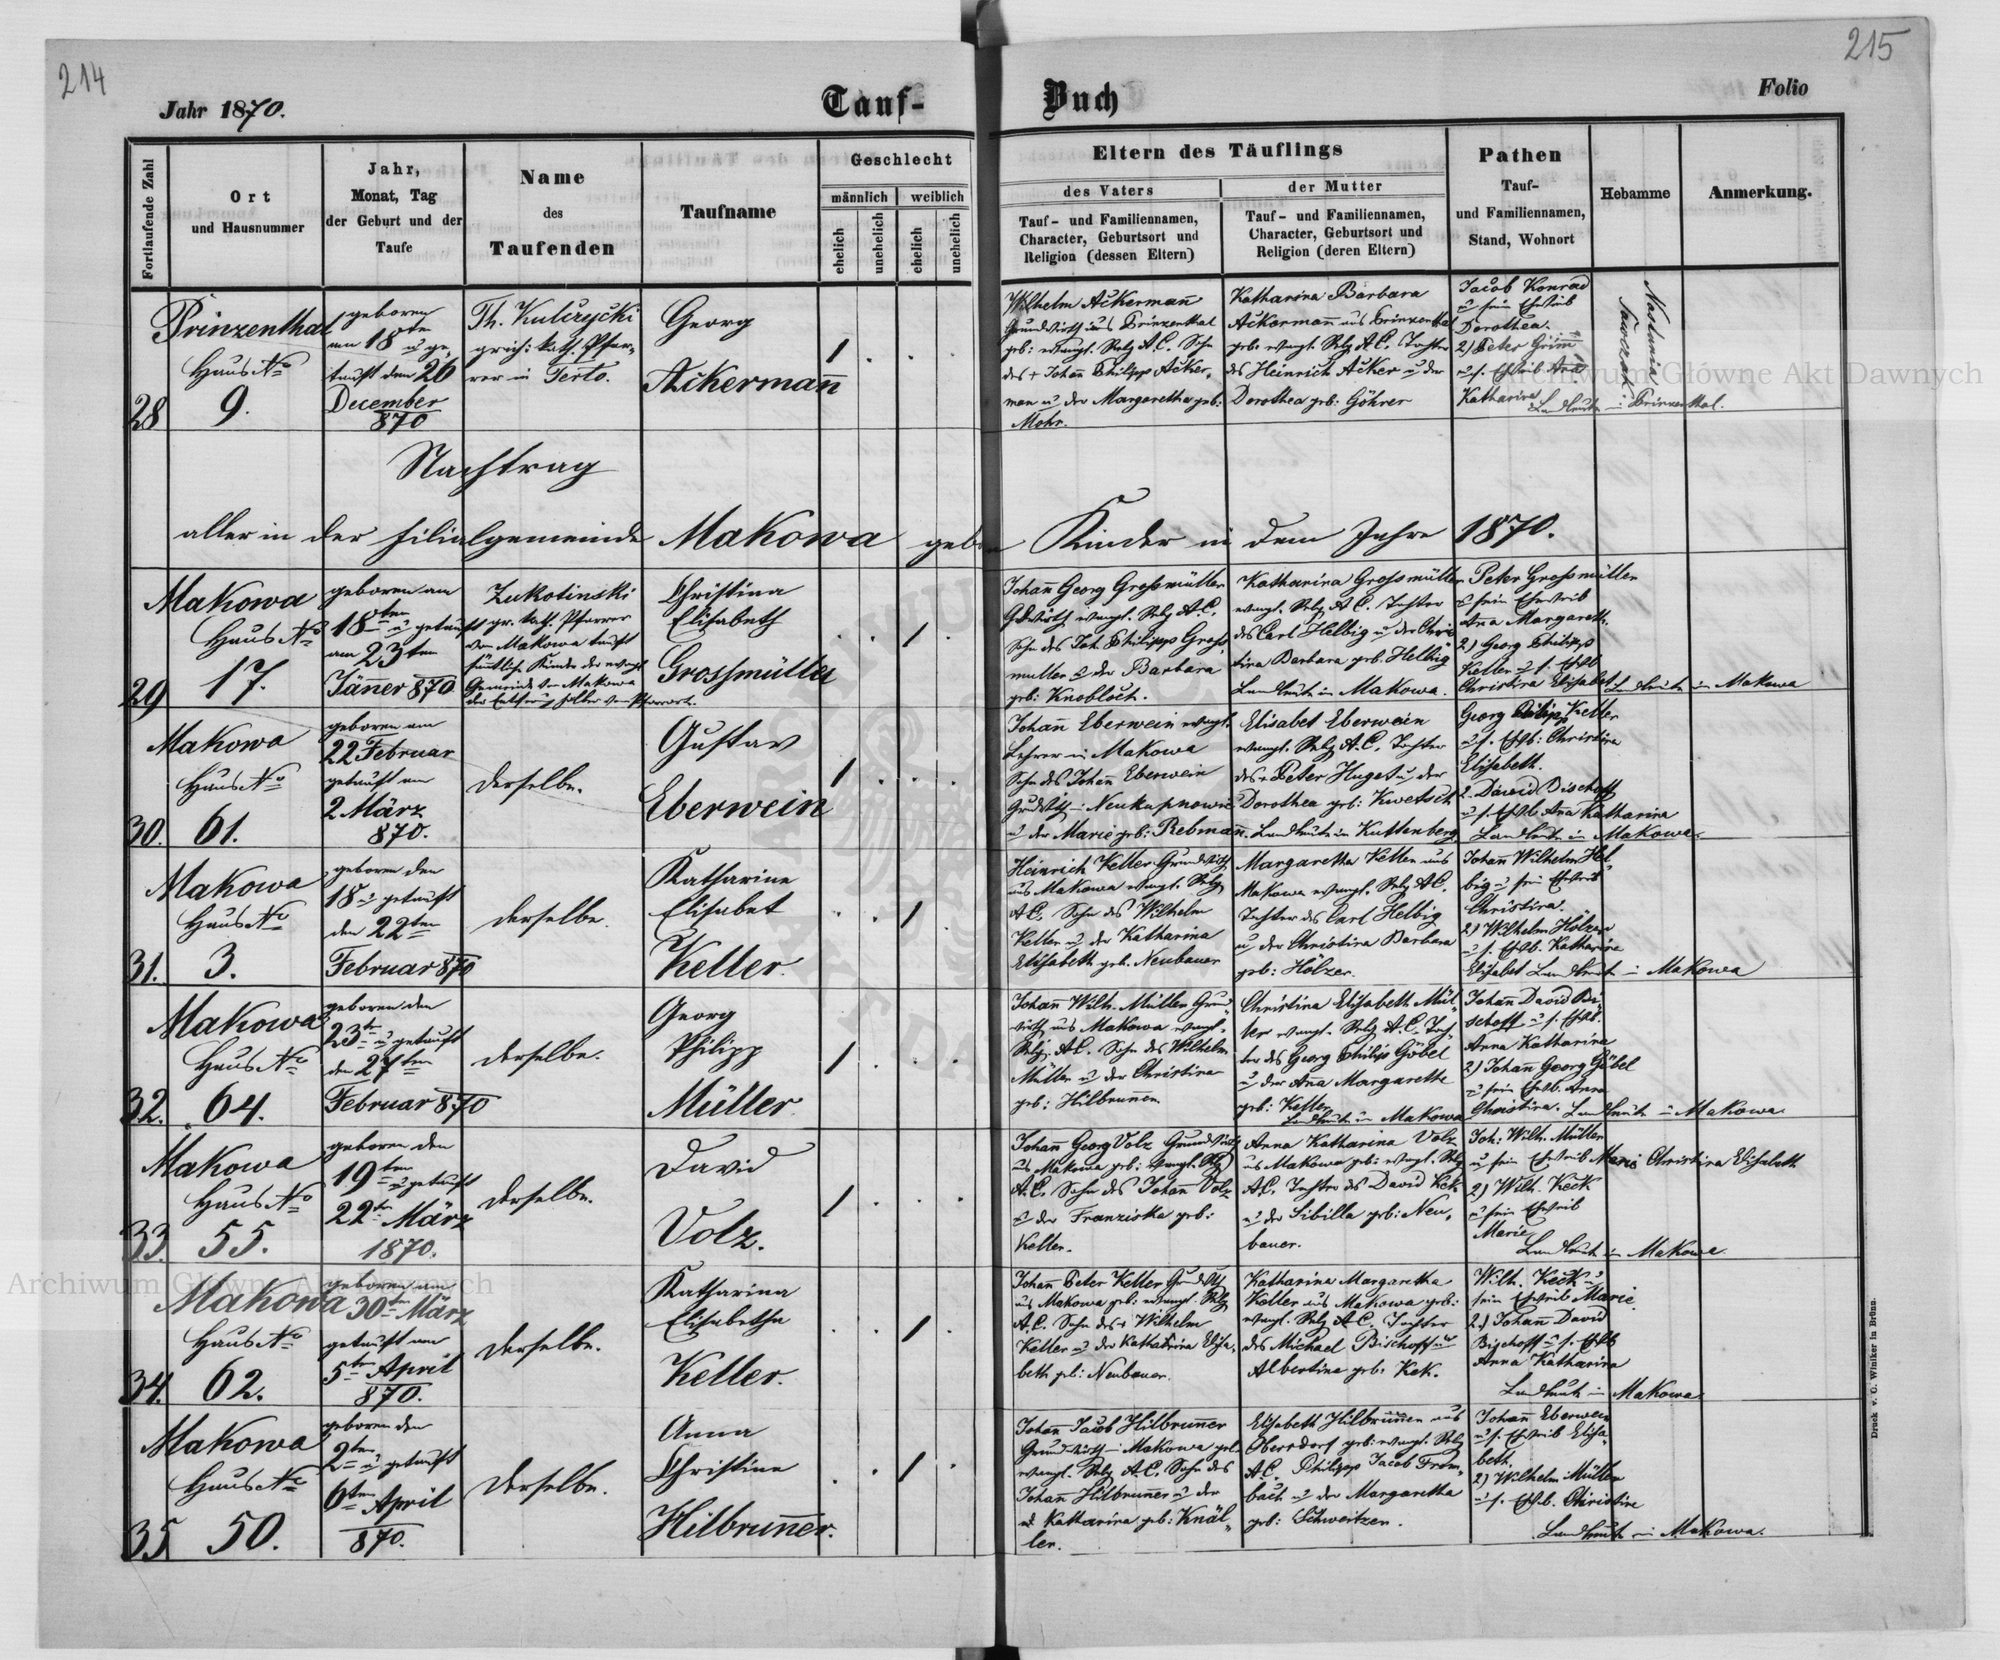 214
215
Jahr 1870.
Tauf-
Buch
Folio
Fortlaufende Zahl
Ort
und Hausnummer
Jahr,
Monat, Tag
der Geburt und der
Taufe
Name
des
Taufenden
Taufname
Geschlecht
männlich
weiblich
ehelich
unehelich
ehelich
unehelich
Eltern des Täuflings
des Vaters
der Mutter
Tauf- und Familiennamen,
Character, Geburtsort und
Religion (dessen Eltern)
Tauf- und Familiennamen,
Character, Geburtsort und
Religion (deren Eltern)
Pathen
Tauf-
und Familiennamen,
Stand, Wohnort
Hebamme
Anmerkung.
28
Prinzenthal
Haus No
9.
geboren
am 18ten u ge-
tauft den 26
December
870
Th. Kulczycki
griech: kath. Pfar-
rer in Terło.
Georg
Ackermann
1
Wilhelm Ackermann
Grundwirth aus Prinzenthal
geb: evangl. Relg A.C. Sohn
des + Johann Philipp Acker-
man u der Margaretha geb:
Mohr.
Katharina Barbara
Ackermann aus Prinzenthal
geb. evangl. Relg A.C. Tochter
des Heinrich Acker u der
Dorothea geb: Göhrer
Jacob Konrad
u sein Eheweib
Dorothea.
2) Peter Grimm
u s. Ehweib Ana
Katharina
Landleute in Prinzenthal.
Nastunia
Nachtrag
aller in der Filialgemeinde Makowa gebo Kinder in dem Jahre 1870.
29
Makowa
Haus No
17.
geboren am
18ten u getauft
am 23ten
Jänner 870
Zukotinski
gr. kath. Pfarrer
von Makowa tauft
sämtliche Kinder der evangl
Gemeinde von Makowa
der Entfernung halber vom Pfarrort.
Christina
Elisabeth
Grossmüller
1
Johann Georg Großmüller
Gdwirth, evangl. Relg A.C.
Sohn des Joh. Philipp Groß
müller u der Barbara
geb: Knobloch.
Katharina Grossmüller
evangl. Relg A.C. Tochter
des Carl Helbig u der Chris
tina Barbara geb. Helbig
Landleute in Makowa.
Peter Grossmüller
u sein Eheweib
Ana Margareth.
2) Georg Philipp
Keller u s. Ehwb
Christina Elisabet
Landleute in Makowa
30.
Makowa
Haus No
61.
geboren am
22 Februar
getauft am
2 März
870.
derselbe.
Gustav
Eberwein
1
Johann Eberwein evangl.
Lehrer in Makowa
Sohn des Johann Eberwein
Grundwirth in Neukupnowic
u der Marie geb: Rebmann.
Elisabet Eberwein
evangl. Relg A.C. Tochter
des + Peter Huget u der
Dorothea geb: Kwetsch
Landleute in Kuttenberg
Georg Philipp Keller
u s. Ehwb: Christina
Elisabeth.
2. David Bischoff
u s. Ehwb Ana Katharina
Landleute in Makowa.
31.
Makowa
Haus No
3.
geboren den
18 u getauft
den 22ten
Februar 870
derselbe.
Katharine
Elisabet
Keller.
1
Heinrich Keller Grundwirth
aus Makowa evangl. Relg
A.C. Sohn des Wilhelm
Keller u der Katharina
Elisabeth geb. Neubauer
Margaretha Keller aus
Makowa evangl. Relg A.C.
Tochter des Carl Helbig
u der Christina Barbara
geb: Hölzer.
Johann Wilhelm Hel
big u sein Eheweib
Christina.
2) Wilhelm Hölzer
u s. Ehwb. Katharina
Elisabet Landleute in Makowa
32.
Makowa
Haus No
64.
geboren den
23ten u getauft
den 27ten
Februar 870
derselbe.
Georg
Philipp
Müller.
1
Johann Wilh. Müller Grund
wirth aus Makowa evangl.
Relg. A.C. Sohn des Wilhelm
Müller u der Christina
geb: Hilbruner
Christina Elisabeth Mül
ler evangl. Relg A.C. Toch
ter des Georg Philip Göbel
u der Ana Margaretha
geb: Keller
Landleute in Makowa
Johan David Bi
schoff u s. Ehwb.
Anna Katharina
2) Johan Georg Göbel
u sein Ehwb. Anna
Christina. Landleute in Makowa.
33
Makowa
Haus No
55.
geboren den
19ten u getauft
22ten März
1870.
derselbe.
David
Volz.
1
Johann Georg Volz Grundwirth
aus Makowa geb: evangl. Relg
A.C. Sohn des Johann Volz
u der Franziska geb:
Keller.
Anna Katharina Volz
aus Makowa geb: evangl. Relg
A.C. Tochter des David Kek
u der Sibilla geb: Neu-
bauer.
Joh. Wilh. Müller
u sein Eheweib Marie Christina Elisabeth
2) Wilh. Keck
u sein Eheweib
Marie
Landleute in Makowa.
34.
Makowa
Haus No
62.
geboren am
30ten März
getauft am
5ten April
870.
derselbe.
Katharina
Elisabetha
Keller.
1
Johann Peter Keller Grundwirth
aus Makowa geb: evangl. Relg
A.C. Sohn des + Wilhelm
Keller u der Katharina Elisa-
beth geb: Neubauer.
Katharina Margaretha
Keller aus Makowa geb:
evangl. Relg A.C. Tochter
des Michael Bischoff u
Albertina geb. Kek.
Wilh. Keck u
sein Eheweib Marie.
2.) Johann David
Bischoff u s. Ehwb
Anna Katharina
Landleute in Makowa.
35
Makowa
Haus No
50.
geboren den
2ten u getauft
6ten April
870.
derselbe.
Anna
Christine
Hilbrunner.
1
Johan Jacob Hilbruner
Grundwirth in Makowa geb.
evangl. Relg A.C. Sohn des
Johann Hilbrunner u der
Katharina geb: Knäl-
ler.
Elisabeth Hilbrunner aus
Obersdorf geb: evangl. Relg
A.C. Philipp Jacob From-
bach u der Margaretha
geb: Schweitzer.
Johann Eberwein
u s. Eheweib Elisa-
beth.
2) Wilhelm Müller
u s. Ehwb. Christine
Landleute in Makowa.
Druck v. C. Winiker in Brünn.
Archiwum Główne Akt Dawnych
Archiwum Główne Akt Dawnych